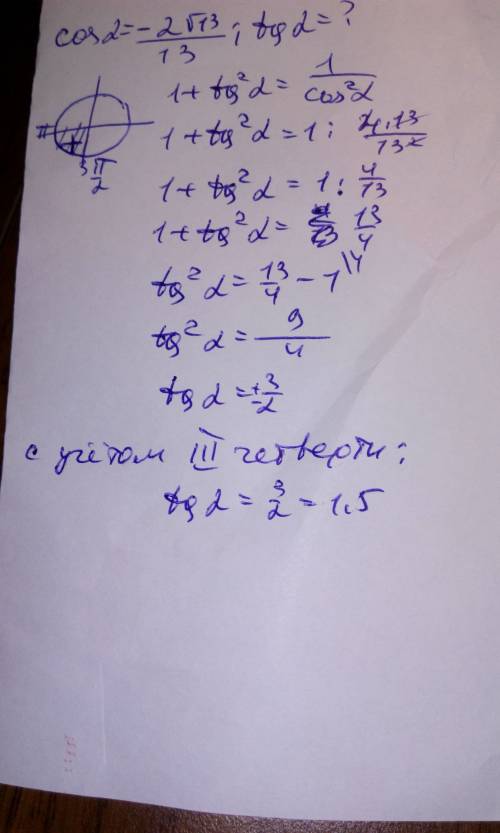 cos α = -2√13/13 ; tg α = ?
1 + tg² α = 1/cos² α
π
3π/2
1 + tg² α = 1 : 4·13/13²
1 + tg² α = 1 : 4/13
1 + tg² α = 13/4
tg² α = 13/4 - 1 \4
tg² α = 9/4
tg α = ± 3/2
с учётом III четверти:
tg α = 3/2 = 1.5